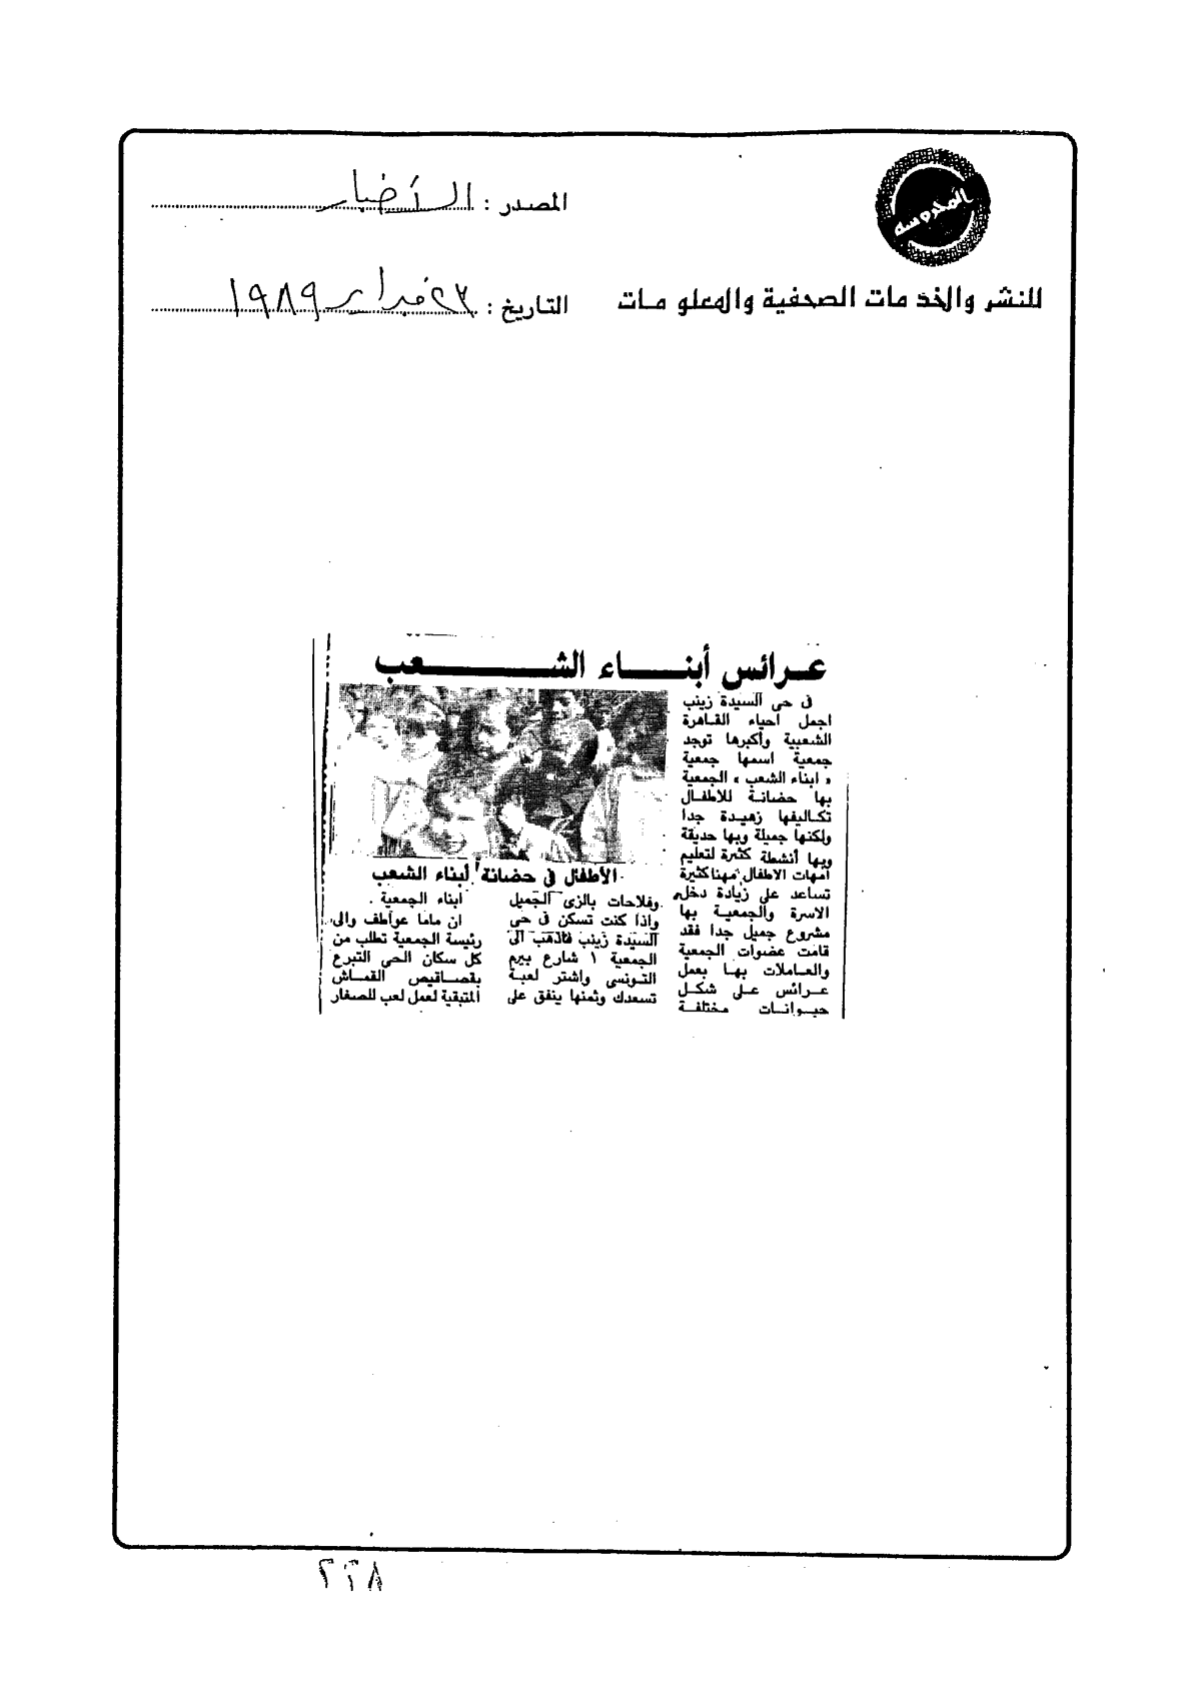 المحروسه
للنشر والخدمات الصحفية والمعلومات
المصدر : الأخبار
التاريخ : ٢٣ فبراير ١٩٨٩
عرائس أبناء الشعب
فى حى السيدة زينب
اجمل احياء القاهرة
الشعبية وأكبرها توجد
جمعية اسمها جمعية
« ابناء الشعب » الجمعية
بها حضانة للاطفال
تكاليفها زهيدة جدا
ولكنها جميلة وبها حديقة
وبها أنشطة كثيرة لتعليم
أمهات الاطفال مهنا كثيرة
تساعد على زيادة دخل
الاسرة والجمعية بها
مشروع جميل جدا فقد
قامت عضوات الجمعية
والعاملات بها بعمل
عرائس على شكل
حيوانات مختلفة
الأطفال فى حضانة أبناء الشعب
وفلاحات بالزى الجميل
واذا كنت تسكن فى حى
السيدة زينب فاذهب الى
الجمعية ١ شارع بيرم
التونسى واشتر لعبة
تسعدك وثمنها ينفق على
ابناء الجمعية .
ان ماما عواطف والى
رئيسة الجمعية تطلب من
كل سكان الحى التبرع
بقصاقيص القماش
المتبقية لعمل لعب للصغار